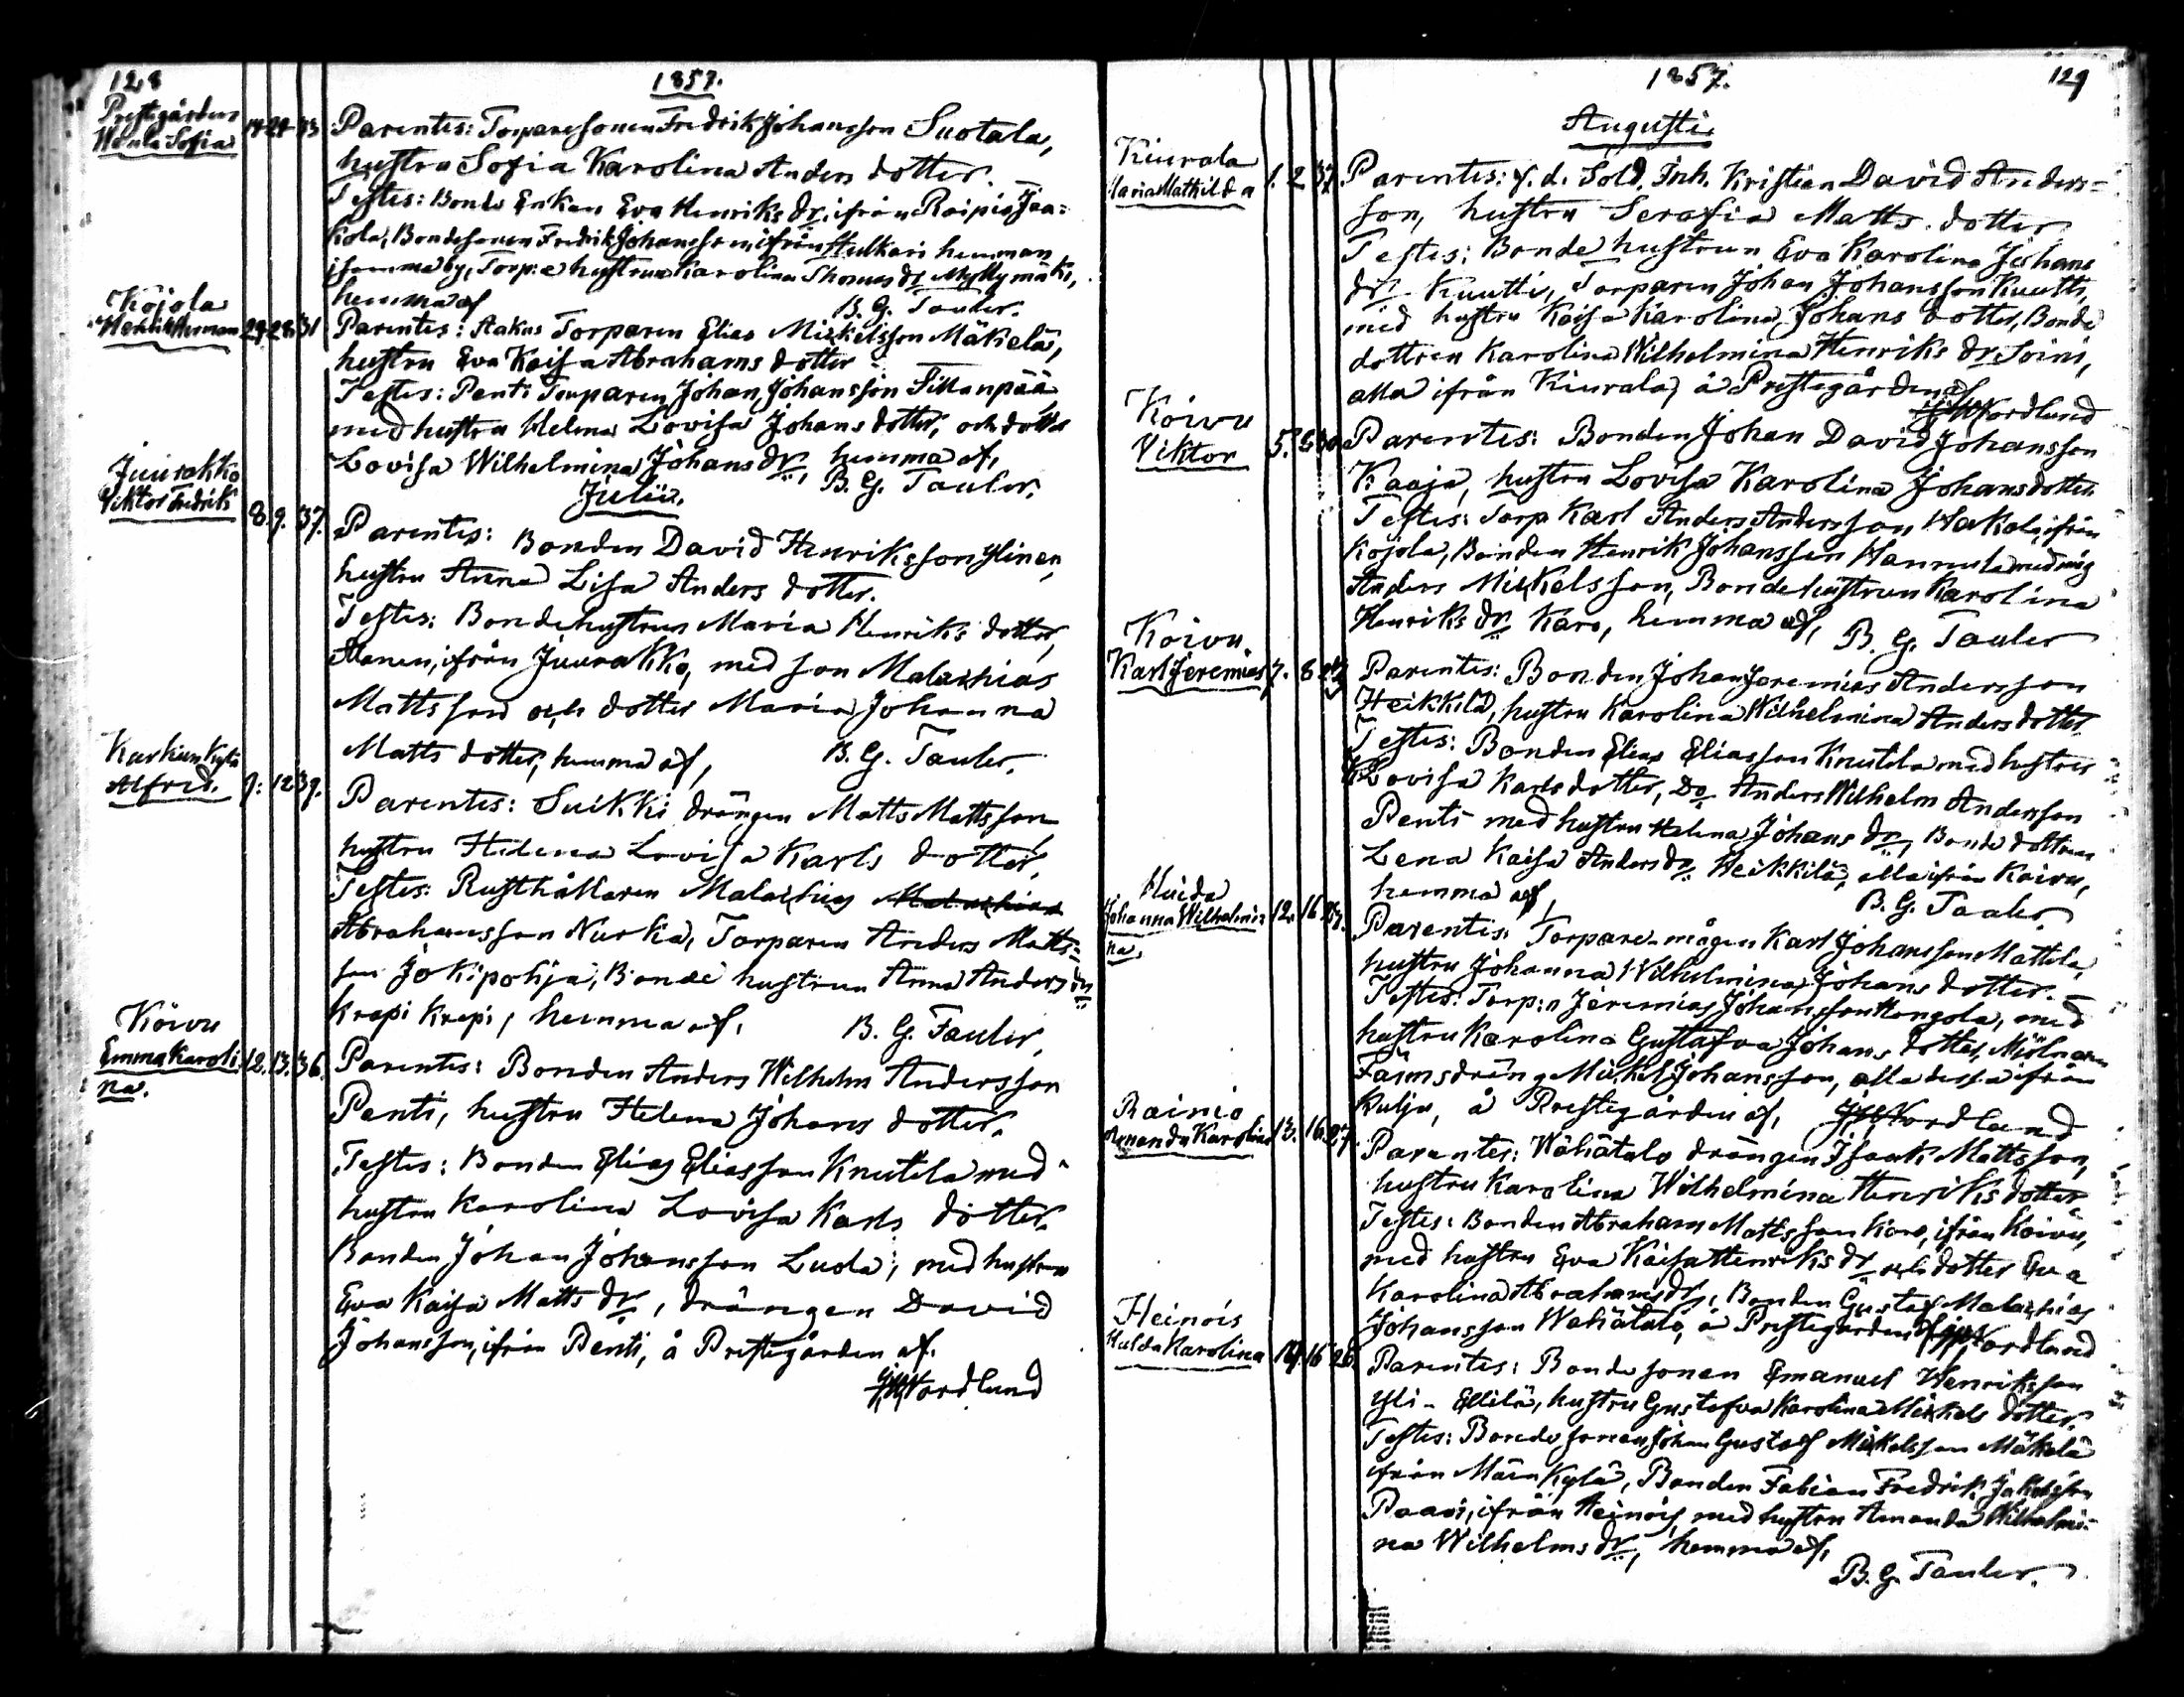 128
1857.
Prestegården
Wäula Sofia 19 24 33 Parentes: Torparesonen Fredrik Johansson Suotala,
hustru Sofia Karolina Anders dotter.
Testes: Bonde Enkan Eva Henriks dr, ifrån Raipio Jaa=
kola, Bondesonen Fredrik Johansson ifrån Hulkari hemman
i samma by, Torp:e hustrun Karolina Thomas dr Myllymäki,
hemma af B. G. Tauler.
Köjola
Henrik Herman 27. 28. 31 Parentes: Aakus Torparen Elias Mickelsson Mäkelä,
hustru Eva Kaisa Abrahams dotter
Testes: Penti Torparen Johan Johansson Fillanpää
med hustru Helena Lovisa Johans dotter, och dotter
Lovisa Wilhelmina Johans dr, hemma af, B. G. Tauler.
Julii.
Juurakko
Viktor Fredrik 8. 9. 37. Parentes: Bonden David Henriksson Ylinen,
hustru Anna Lisa Anders dotter.
Testes: Bondehustrun Maria Henriks dotter,
Alanen, ifrån Juurakko, med son Malachias
Mattsson och dotter Maria Johanna
Matts dotter, hemma af, B. G. Tauler.
Karhiankylä
Alfred. 9. 12 39. Parentes: Suikki drängen Matts Mattsson
hustru Helena Lovisa Karls dotter,
Testes: Rusthållaren Malachias Malachias
Abrahamsson Nurka, Torparen Anders Matts=
son Jokipohja, Bonde hustrun Anna Anders dr
Krapi Krapi, hemma af, B. G. Tauler,
Köivu
Emma Karoli 12. 13. 36. Parentes: Bonden Anders Wilhelm Andersson
na. Penti, hustru Helena Johans dotter.
Testes: Bonden Elias Eliasson Knutila med
hustru Karolina Lovisa Karls dotter.
Bonden Johan Johansson Luola, med hustrun
Eva Kaisa Matts dr, drängen David
Johansson, ifrån Penti, å Prestegården af.
Nordlund
1857. 129
Augusti.
Kiurala
Maria Mathilda 1. 2 37. Parentes: f. d. Sold. Inh. Kristian David Anders=
son, hustru Serafia Matts dotter.
Testes: Bonde hustrun Eva Karolina Johans
dr Kuutti, Torparen Johan Johansson Kuutti,
med hustru Kaisa Karolina Johans dotter, Bonde
dottren Karolina Wilhelmina Henriks dr Soini,
alla ifrån Kiurala, å Prestegården af
Nordlund
Koivu
Viktor 5. Parentes: Bonden Johan David Johansson
Kaaja, hustru Lovisa Karolina Johansdotter.
Testes: Torp Karl Anders Andersson Hakola, ifrån
Kojola, Bonden Henrik Johansson Hannula med måg
Anders Mickelsson, Bondehustrun Karolina
Henriks dr Karo, hemma af, B. G. Tauler
Koivu
Karl Jeremias 7. 8 Parentes: Bonden Johan Jeremias Andersson
Heikkilä, hustru Karolina Wilhelmina Anders dotter.
Testes: Bonden Elias Eliasson Knutila med hustru
K Lovisa Karls dotter, Do Anders Wilhelm Andersson
Penti med hustru Helena Johans dr, Bonde dottren
Lena Kaisa Anders dr Heikkilä, alla ifrån Koivu,
hemma af, B. G. Tauler
Huida
Johanna Wilhelmi 12. 16. Parentes: Torpare-mågen Karl Johansson Mattila,
na. hustru Johanna Wilhelmina Johans dotter.
Testes: Torp:n Jeremias Johansson Hongola, med
hustru Karolina Gustafva Johans dotter, Mjölnaren
Färmsdräng Mickel Johansson, alla dessa ifrån
Kulju, å Prestegården af, Nordlund
Rainio
Amanda Karolina 13. 16. 27. Parentes: Wähätalo drängen Isaak Mattsson,
hustru Karolina Wilhelmina Henriks dotter
Testes: Bonden Abraham Mattsson Karo, ifrån Koivu,
med hustru Eva Kaisa Henriks dr och dotter Eva
Karolina Abrahams dr, Bonden Gustaf Malachias
Johansson Wähätalo, å Prestegården af, Nordlund
Heinois
Hulda Karolina 14. 16 26. Parentes: Bonde sonen Emanuel Henriksson
Yli-Ellilä, hustru Gustafva Karolina Mickels dotter.
Testes: Bonde sonen Johan Gustaf Mickelsson Mäkelä
ifrån Männkylä, Bonden Fabian Fredrik Jakobsson
Paavi, ifrån Heinois, med hustru Amanda Wilhelmi-
na Wilhelms dr, hemma af,
B. G. Tauler.